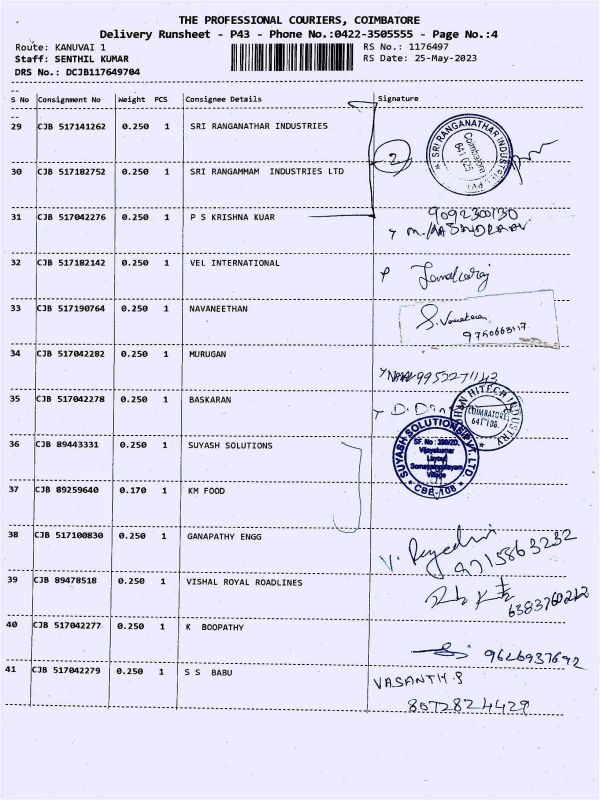 THE PROFESSIONAL COURIERS, COIMBATORE
Delivery Runsheet - P43 - Phone No.:0422-3505555 - Page No.:4
Route: KANUVAI 1 RS No.: 1176497
Staff: SENTHIL KUMAR RS Date: 25-May-2023
DRS No.: DCJB117649704
S No Consignment No Weight PCS Consignee Details Signature
29 CJB 517141262 0.250 1 SRI RANGANATHAR INDUSTRIES
SRI RANGANATHAR INDUSTRIES
Coimbatore
2
30 CJB 517182752 0.250 1 SRI RANGAMMAM INDUSTRIES LTD
31 CJB 517042276 0.250 1 P S KRISHNA KUAR
9092300130
32 CJB 517182142 0.250 1 VEL INTERNATIONAL
33 CJB 517190764 0.250 1 NAVANEETHAN
9750663117
34 CJB 517042282 0.250 1 MURUGAN
9952271143
35 CJB 517042278 0.250 1 BASKARAN
HITECH INDUSTRY
COIMBATORE
641 108.
36 CJB 89443331 0.250 1 SUYASH SOLUTIONS
SUYASH SOLUTIONS PVT. LTD.
Vijayakumar
Village
CBE-108
37 CJB 89259640 0.170 1 KM FOOD
38 CJB 517100830 0.250 1 GANAPATHY ENGG
9715863232
39 CJB 89478518 0.250 1 VISHAL ROYAL ROADLINES
6383760212
40 CJB 517042277 0.250 1 K BOOPATHY
9626937692
41 CJB 517042279 0.250 1 S S BABU
VASANTH.S
8072824429